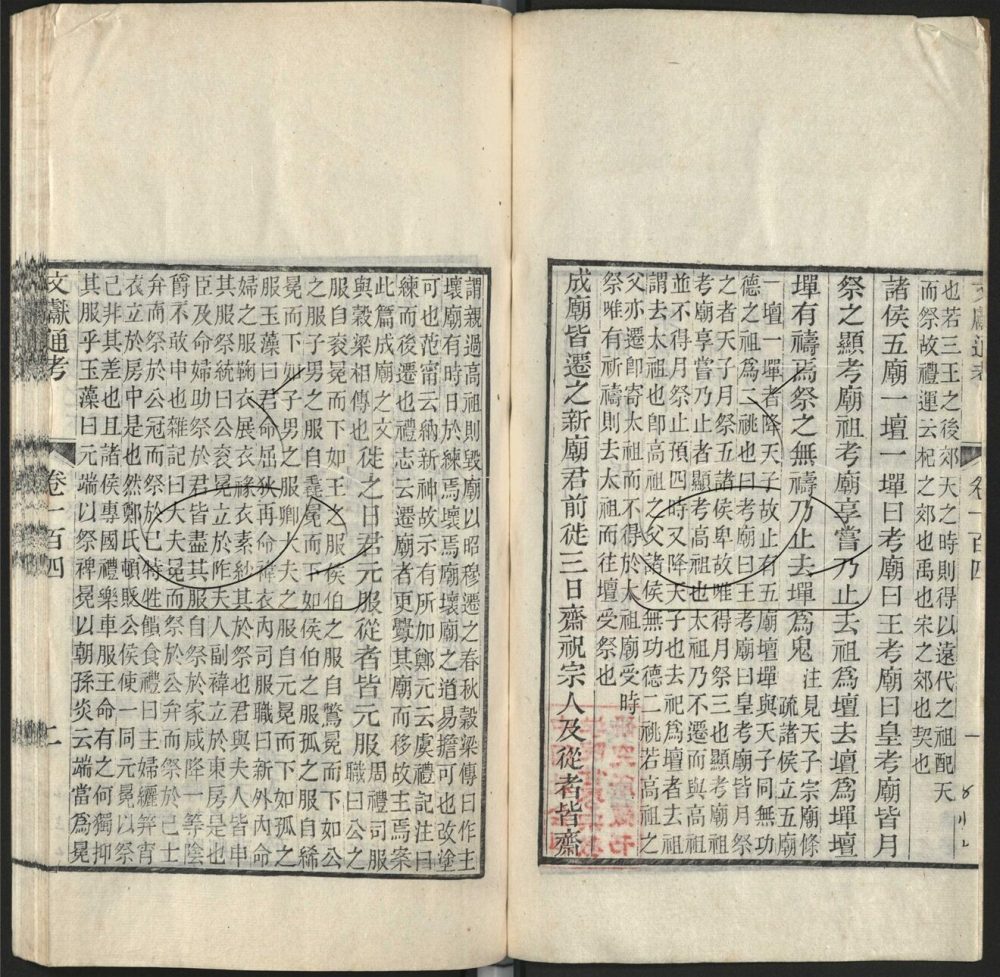 也若三王之後郊天之時則得以遠代之祖配天
而祭故禮運云杞之郊也禹也宋之郊也契也
諸侯五廟一壇一墠曰考廟曰王考廟曰皇考廟皆月
祭之顯考廟祖考廟享嘗乃止去祖爲壇去壇爲墠壇
墠有禱焉祭之無禱乃止去墠爲鬼
注見天子宗廟條
疏諸侯立五廟
一壇一墠者降天子故止有五廟壇墠與天子同無功
德之祖爲二祧也曰考廟曰王考廟曰皇考廟皆月祭
之者天子月祭五諸侯卑故唯得月祭三也顯考廟祖
考廟享嘗乃止者顯考高祖也太祖乃不遷而與高祖
並不得月祭止預四時又降天子也去祀爲壇者去祖
謂去太祖也卽高祖之父諸侯無功德二祧若高祖之
父亦遷卽寄太祖而不得於太祖廟受時
祭唯有祈禱則去太祖而往壇受祭也
成廟皆遷之新廟君前徙三日齋祝宗人及從者皆齋
謂親過高祖則毀廟以昭穆遷之春秋穀梁傳曰作主
壞廟有時日於練焉壞廟壞廟之道易擔可也改塗
可也范甯云納新神故示有所加鄭元云虞禮記注曰
練而後遷也禮志云遷廟者更釁其廟而移故主焉案
此篇成廟之文
與穀梁相傳也
徙之日君元服從者皆元服
周禮司服
職曰公之
服自袞冕而下如王之服侯伯之服自鷩冕而下如公
之服子男之服自毳冕而下如侯伯之服孤之服自稀
冕而下如子男之服卿大夫之服自元冕而下如孤之
服玉藻曰君命屈狄再命褘衣內司服職曰新外內命
婦之服鞠衣展衣褖衣素紗其於祭也君與夫人皆申
其服祭統曰公袞冕立於阼夫人副褘立於東房是也
臣及命婦助祭於君皆盡其服自祭於家咸降一等陰
爵不敢申也雜記曰大夫冕而祭於公弁而祭於己士
弁而祭於公冠而祭於己特牲饋食禮曰主婦纚筓宵
衣立於房中是也然鄭氏頓貶公侯使一同元冕以祭
己非其差也且諸侯專國禮樂車服王命有之何獨抑
其服乎玉藻曰元端以祭裨冕以朝孫炎云端當爲冕
文獻通考
卷一百四
二